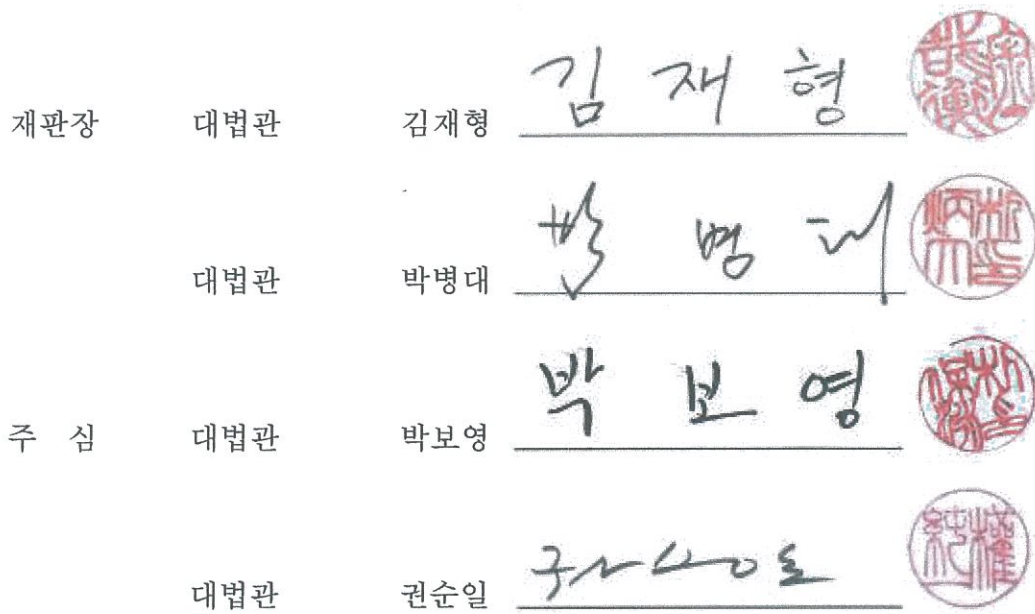 재판장 대법관 김재형 김 재 형
대법관 박병대 박 병 대
주 심 대법관 박보영 박 보 영
대법관 권순일 권순일